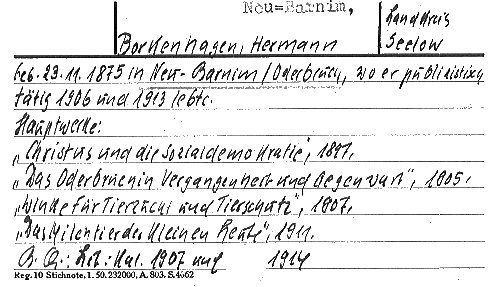 Neu-Barnim,
Landkreis
Seelow
Borkenhagen, Hermann
geb. 29. 11. 1875 in Neu-Barnim/Oderbruch, wo er publizistisch
tätig 1906 und 1913 lebte.
Hauptwerke:
„Christus und die Sozialdemokratie", 1897.
„Das Oderbruch in Vergangenheit und Gegenwart", 1905.
„Winke für Tierzucht und Tierschutz", 1907.
„Das Milchtier der kleinen Leute", 1911.
1907 und 1914
Reg. 10 Stichnote, 1. 50. 232000, A. 803. S. 4662